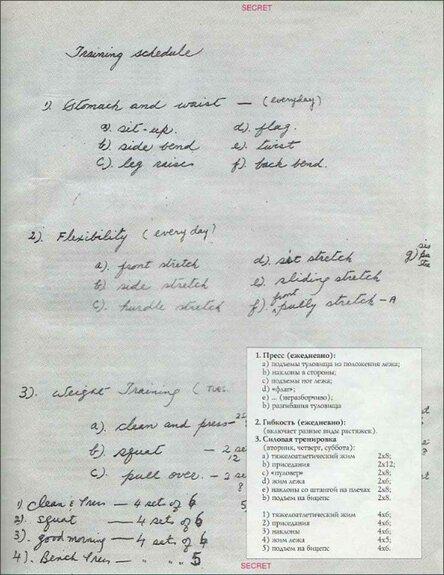 SECRET
Training schedule
1). Stomach and waist — (everyday)
a). sit-up. d). flag.
b) side bend e). twist
c). leg raises f). back bend.
2). Flexibility (everyday)
a). front stretch d). sit stretch g)
b). side stretch e). sliding stretch
c). hurdle stretch f). front pully stretch - A
3). Weight Training (TUES.
a). clean and press
b). squat - 2 se
12
c). pull over. - 2 se
8
1) Clean & Press — 4 sets of 6
2). squat — 4 sets of 6
3). good morning — 4 sets of 6
4). Bench Press — " " 5
1. Пресс (ежедневно):
a) подъемы туловица из положения лежа;
b) наклоны в стороны;
c) подъемы ног лежа;
d) «флаг»;
e) ... (неразборчиво);
b) разгибания туловища
2. Гибкость (ежедневно):
(включает разные виды растяжек).
3. Силовая тренировка
(вторник, четверг, суббота):
a) тяжелоатлетический жим 2x8;
b) приседания 2x12;
c) «пуловер» 2x8;
d) жим лежа 2x6;
e) наклоны со штангой на плечах 2x8;
b) подъем на бицепс 2x8;
1) тяжелоатлетический жим 4x6;
2) приседания 4x6;
3) наклоны 4x6;
4) жим лежа 4x5;
5) подъем на бицепс 4x6.
SECRET